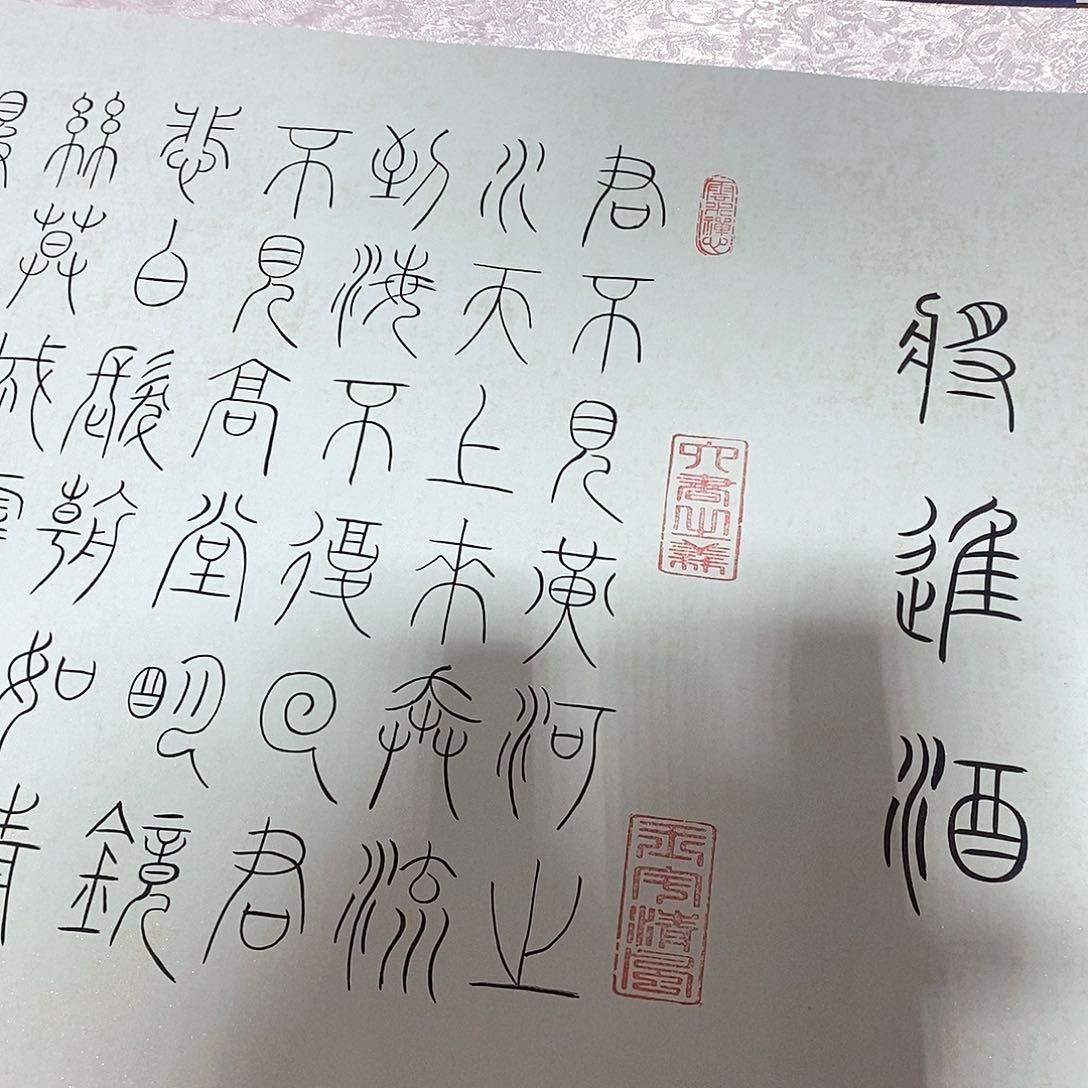 將進酒
君不見黃河之
水天上來奔流
到海不復回君
不見高堂明鏡
悲白髮朝如青
絲莫成雪